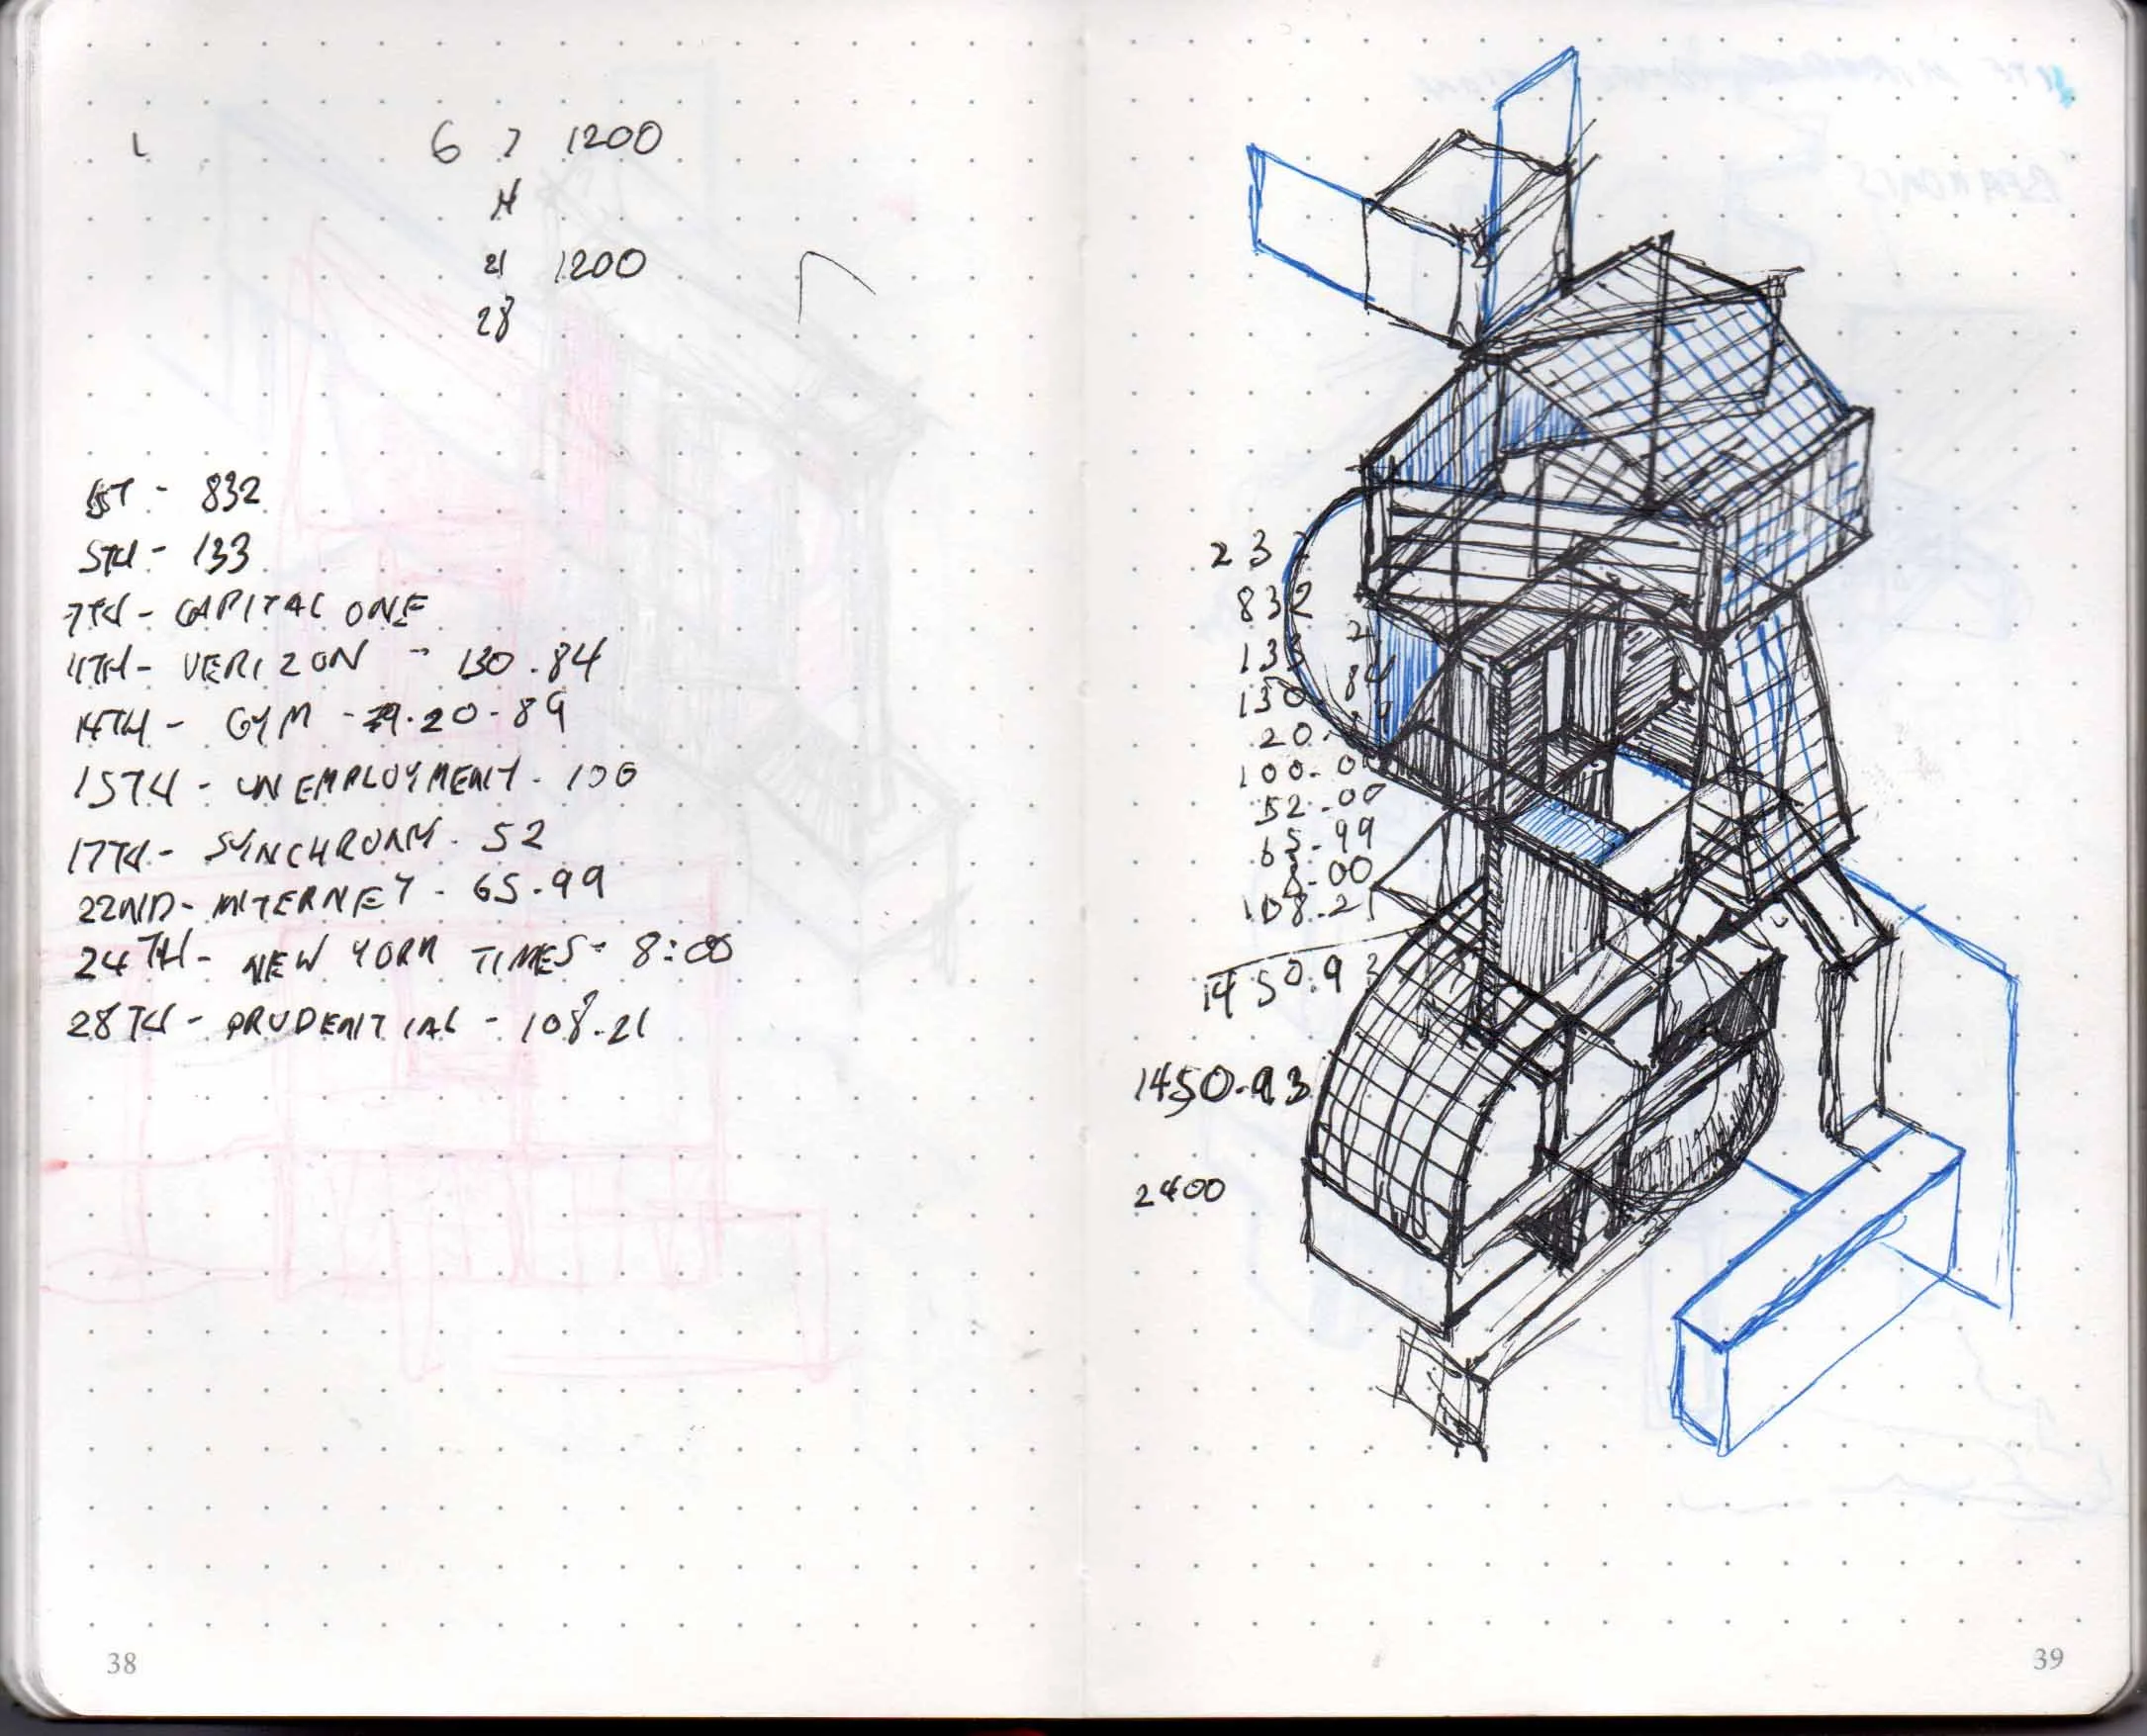 6 7 1200
14
21 1200
28
1ST - 832
5TH - 133
7TH - CAPITAL ONE
11TH - VERIZON - 130.84
14TH - GYM - 20.89
15TH - UNEMPLOYMENT - 100
17TH - SYNCHRONY - 52
22ND - INTERNET - 65.99
24TH - NEW YORK TIMES - 8:00
28TH - PRUDENTIAL - 108.21
38
23
832
133
130. 84
20.
100.00
52.00
65.99
8.00
108.21
1450.93
1450.93
2400
39